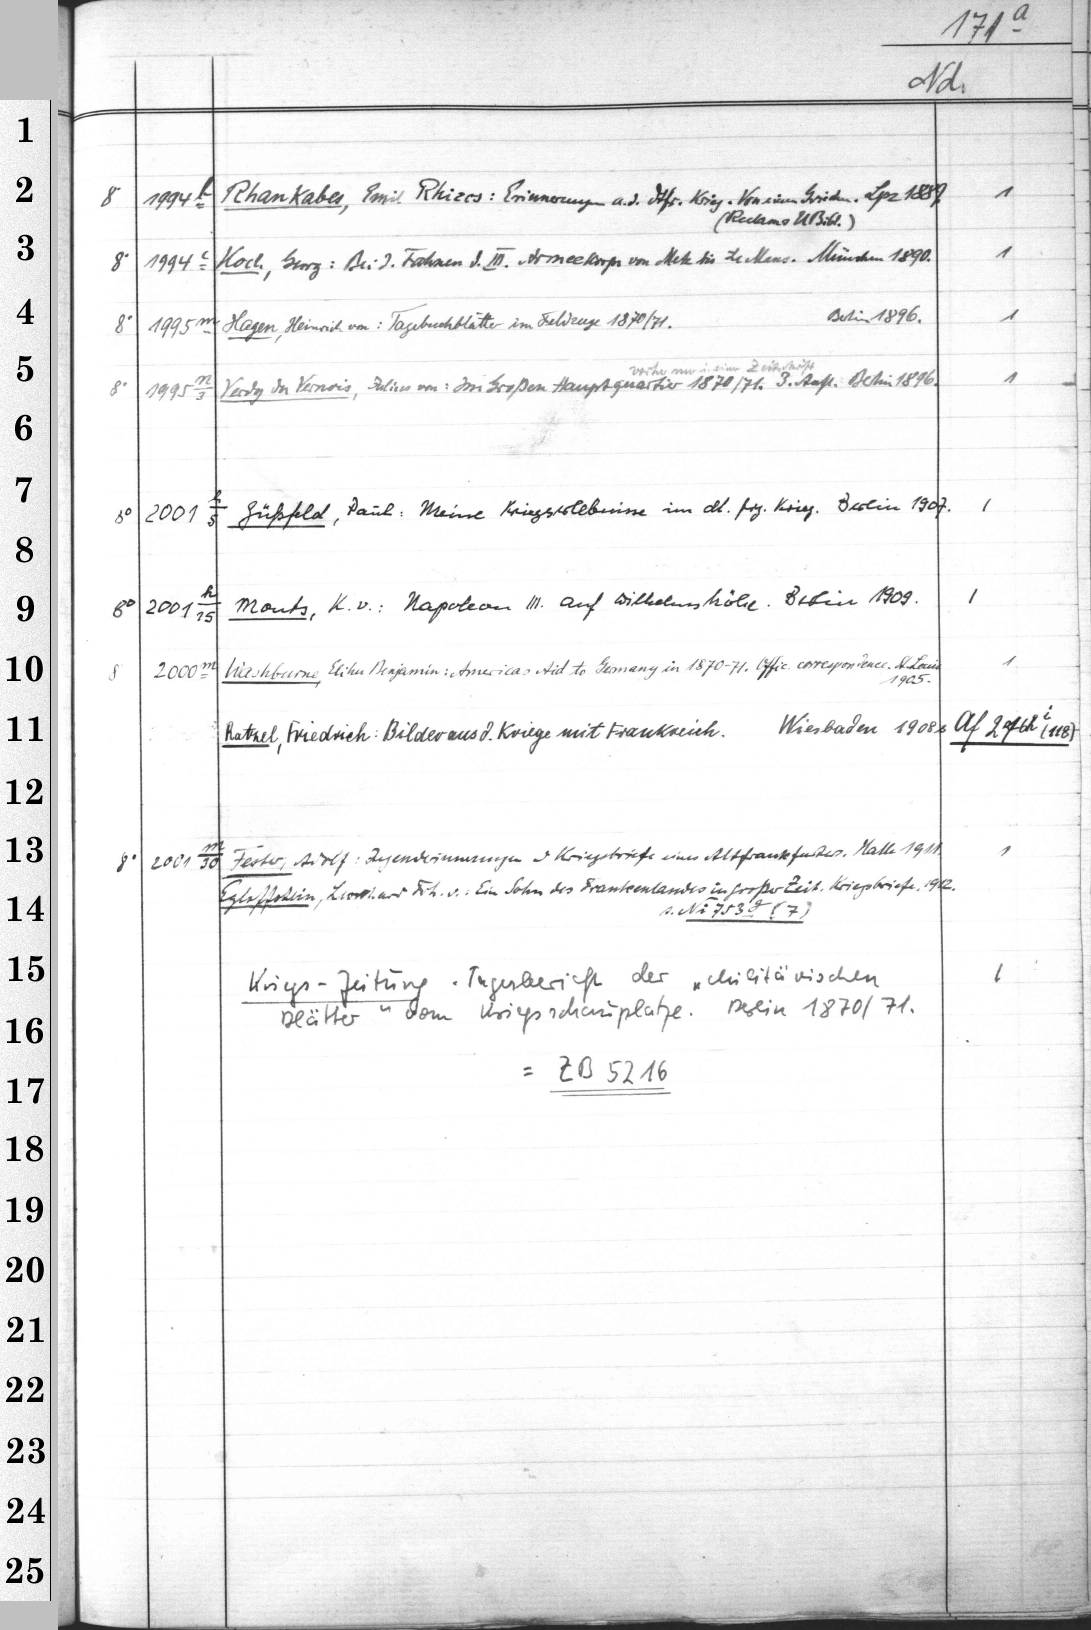 171 a
Nd.
8° 1994 b Rhankabes, Emil Rhizos: Erinnerungen a. d. dtfr. Krieg. Von einem Griechen. Lpz 1889. 1
(Reclams UBibl.)
8° 1994 c Koch, Georg: Bei d. Fahnen d. III. Armeekorps von Metz bis Le Mans. München 1890. 1
8° 1995 m Hagen, Heinrich von: Tagebuchblätter im Feldzuge 1870/71. Berlin 1896. 1
vorher nur in einer Zeitschrift
8° 1995 n/3 Verdy du Vernois, Julius von: Im Großen Hauptquartier 1870/71. 3. Aufl. Berlin 1896. 1
8° 2001 k/5 Güßfeld, Paul: Meine Kriegserlebnisse im dt. frz. Krieg. Berlin 1907. 1
8° 2001 k/15 Monts, K. v.: Napoleon III. auf Wilhelmshöhe. Berlin 1909. 1
8 2000 m Washburne, Elihu Benjamin: Americas Aid to Germany in 1870-71. Offic. correspondence. St Louis 1
1905.
Ratzel, Friedrich: Bilder aus d. Kriege mit Frankreich. Wiesbaden 1908 Af (118)
8° 2001 m/30 Fester, Adolf: Jugenderinnerungen u Kriegsbriefe eines Altfrankfurters. Halle 1911. 1
Egloffstein, Leonhard Frh. v.: Ein Sohn des Frankenlandes in großer Zeit. Kriegsbriefe. 1912.
s. Ni 753 g (7)
Kriegs-Zeitung. Tagesbericht der „Militärischen 1
Blätter" vom Kriegsschauplatze. Berlin 1870/71.
= ZB 5216
1
2
3
4
5
6
7
8
9
10
11
12
13
14
15
16
17
18
19
20
21
22
23
24
25